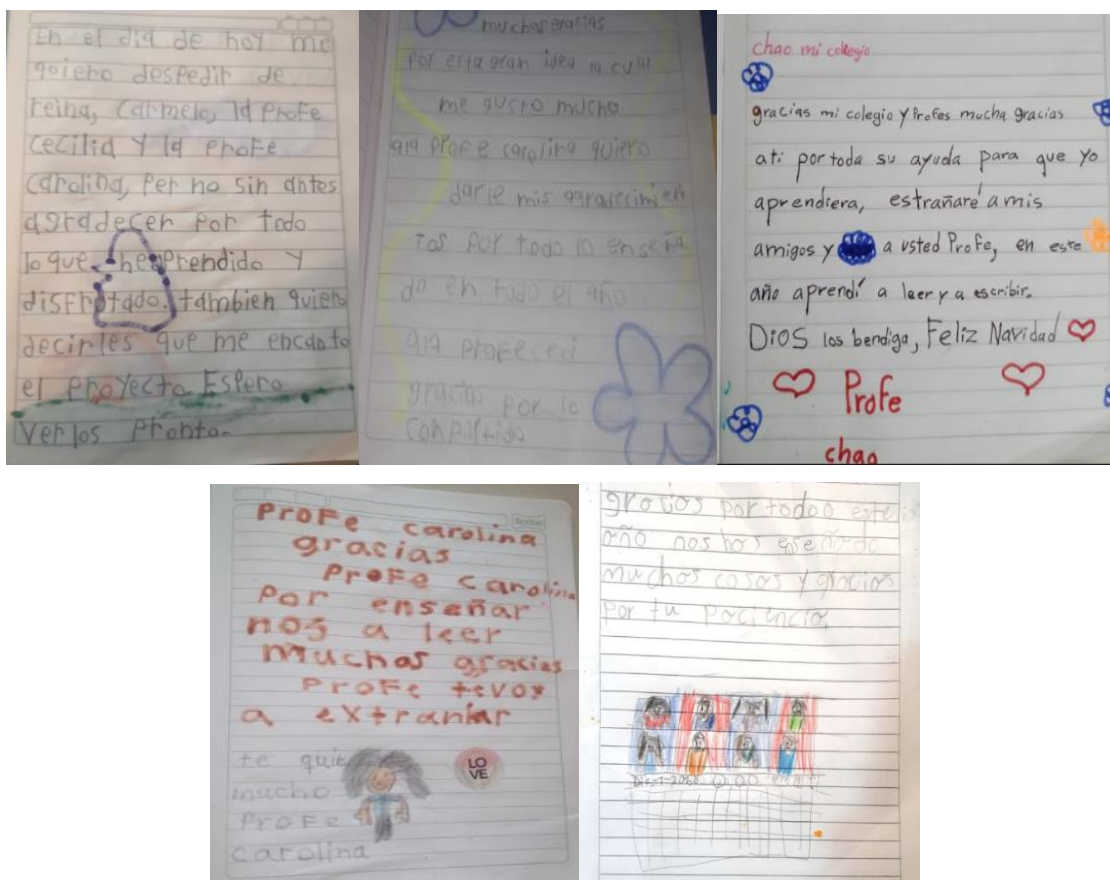 En el dia de hoy me
quiero despedir de
reina, Carmelo, la Profe
Cecilia y la Profe
Carolina, Per no sin antes
agradecer Por todo
lo que he aprendido y
disfrutado. tambien quiero
decirles que me encanto
el Proyecto. Espero
verlos Pronto.
muchas gracias
por esta gran idea la cual
me gusto mucho
ala profe carolina quiero
darle mis agradecimien
tos por todo lo enseña
do en todo el año
ala profe ceci
gracias por lo
compartido
chao mi colegio
gracias mi colegio y Profes mucha gracias
ati por toda su ayuda para que yo
aprendiera, estrañaré a mis
amigos y a usted Profe, en este
año aprendí a leer y a escribir.
DIOS los bendiga, Feliz Navidad
Profe
chao
Profe carolina
gracias
Profe carolina
Por enseñar
nos a leer
muchas gracias
Profe tevoy
a extraniar
te quie
mucho
Profe
carolina
LO
VE
gracias por todoo este
año nos has enseñado
muchas cosas y gracias
por tu paciencia